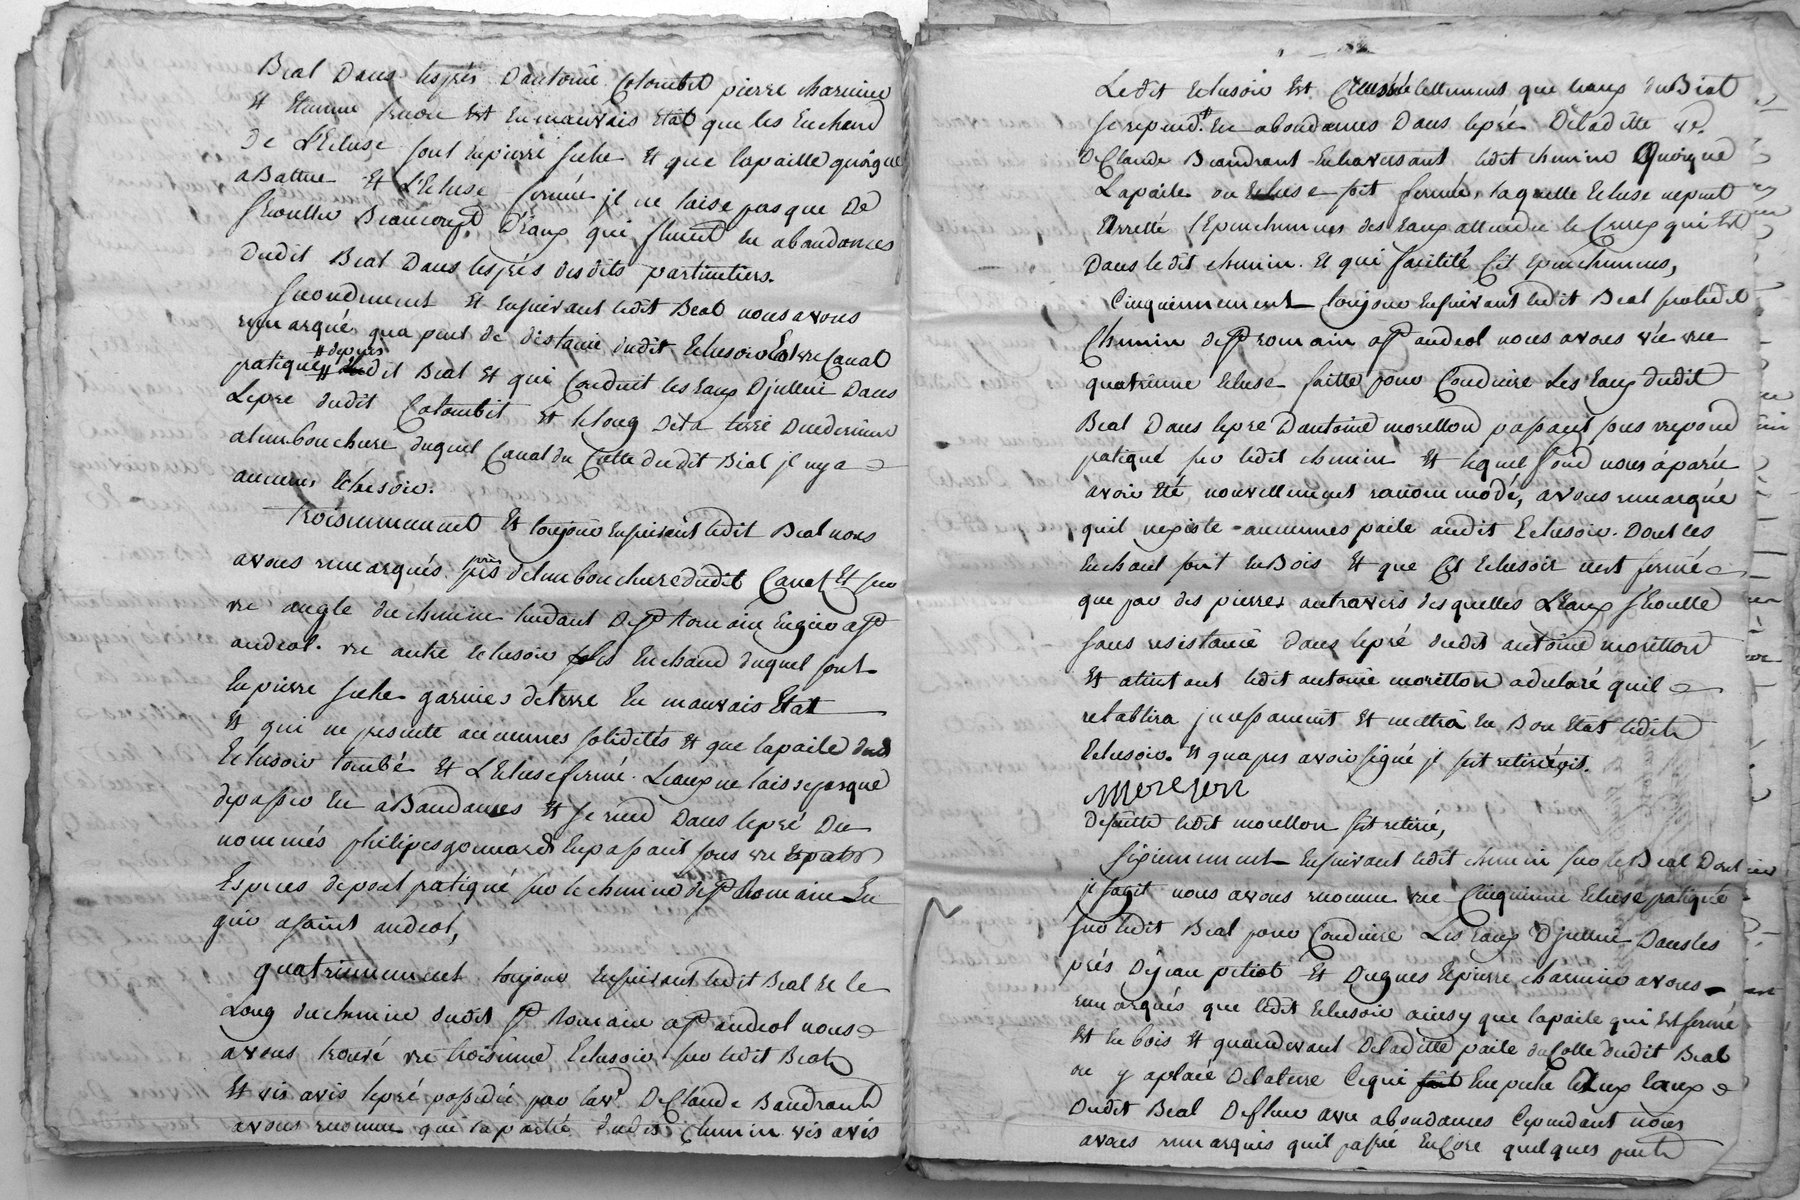 Bial dans lesprés dantoine Colombet pierre charmier
Et Etienne Est En mauvais Etat que les Enchand
de L'Ecluse sont En pierre seche Et que lapaille quoique
aBattue Et L'Ecluse fermée jl ne laise pas que De
sécouller Beaucoupt D'Eaux qui fluent En abondances
dudit Bial Dans lesprés desdits particuliers.
secondement Et Ensuivant ledit Beal nous avons
remarqués qua peut de distance dudit Eclusoir Est vre Canal
pratiqué # ledit Bial Et qui Conduit les Eaux Djcelluy Dans
# depuis
Lepré dudit Colombet Et lelong dela terre dudernier
alembouchure duquel Canal du Cotté dudit Bial jl nya
aucuns Eclusoir.
troisiemement Et toujour Ensuivant ledit Beal nous
avons remarqués près delembouchure dudit Canal Et sur
vn angle du chemin tendant De st Romain Engier a st
andeol. vn autre Eclusoir les Enchand duquel sont
En pierre seche garnies deterre En mauvais Etat
Et qui ne presente aucunnes soliditté Et que lapaile dud
Eclusoir tombé Et L'Ecluse fermé. Leaux ne laisse pasque
depasser En aBandances Et se rend Dans lepré Du
nommés philipes gonnard Enpassant sous vne
Especes depont pratiqué sur lechemin de st Romain En
gier a saint andeol,
quatriemement toujour Ensuivant ledit Beal Et le
Long duchemin dudit st Romain a st andeol nous
avons trouvé vne troisieme Eclusoir sur ledit Beal
Et vis avis lepré possedée par lavve De Claude Baudrant
avons reconnu que lapartie dudit chemin vis avis
Ledit Eclusoir Est Creusé tellement que leaux du Bial
se repend En abondannes Dans lepré Deladitte ve.
de Claude Baudrant Entraversant ledit chemin Quoique
Lapaile ou Ecluse soit fermée, laquelle Ecluse nepeut
Arretté l'Epenchemnes des Eaux attendu le Creux qui Est
Dans ledit chemin. Et qui facilité Cet Epenchemnes,
Cinquiemement toujour Ensuivant ledit Beal sur ledit
Chemin de st romain a st andeol nous avons vue vne
quatrieme Ecluse faitte pour Conduire Les Eaux dudit
Beal Dans lepré Dantoine morellon passant sous vn pond
patiqué sur ledit chemin Et lequel pond nous áparu
avoir Eté nouvellement racommodé, avons remarqué
quil nexiste aucunnes paile audit Eclusoir. Dont les
Enchant sont En Bois Et que Cet Eclusoir nest fermé
que par des pierres autravers desquelles L'Eaux s'Ecoulle
sans resistance dans lepré dudit antoine morellon
Et atinstant ledit antoine morellon a declaré quil
retablira jncessament Et mettra En Bon Etat ledit
Eclusoir. Et quapres avoir signé jl sest retirévis.
Morelon
Desuitte ledit morellon sest retirée,
sixiemement Ensuivant ledit chemin sur le Beal Dont
jl sagit nous avons reconnu vne Cinquieme Ecluse pratiqué
sur ledit Beal pour Conduire Les Eaux Djcelluy Dans les
prés Dejean petiot Et Dugnes Epierre charmier avons
remarqués que ledit Eclusoir ainsy que lapaile qui Est fermé
Est En bois Et quaudevant Deladitte paile du Cotté dudit Beal
on y aplacé Delaterre Cequi Empeche Leaux
Dudit Beal Defluer avec abondances Cependant nous
avons remarqués quil passe Encore quelques petit